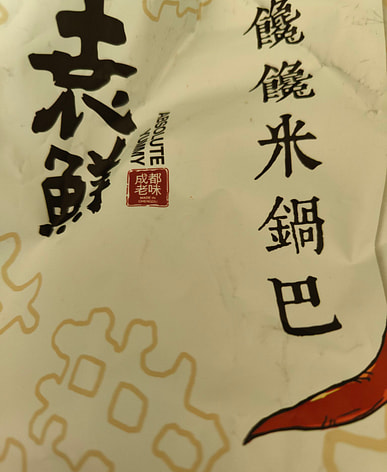 袁鲜
ABSOLUTE
YUMMY
成都
老味
MADE IN
CHENGDU
馋馋米鍋巴